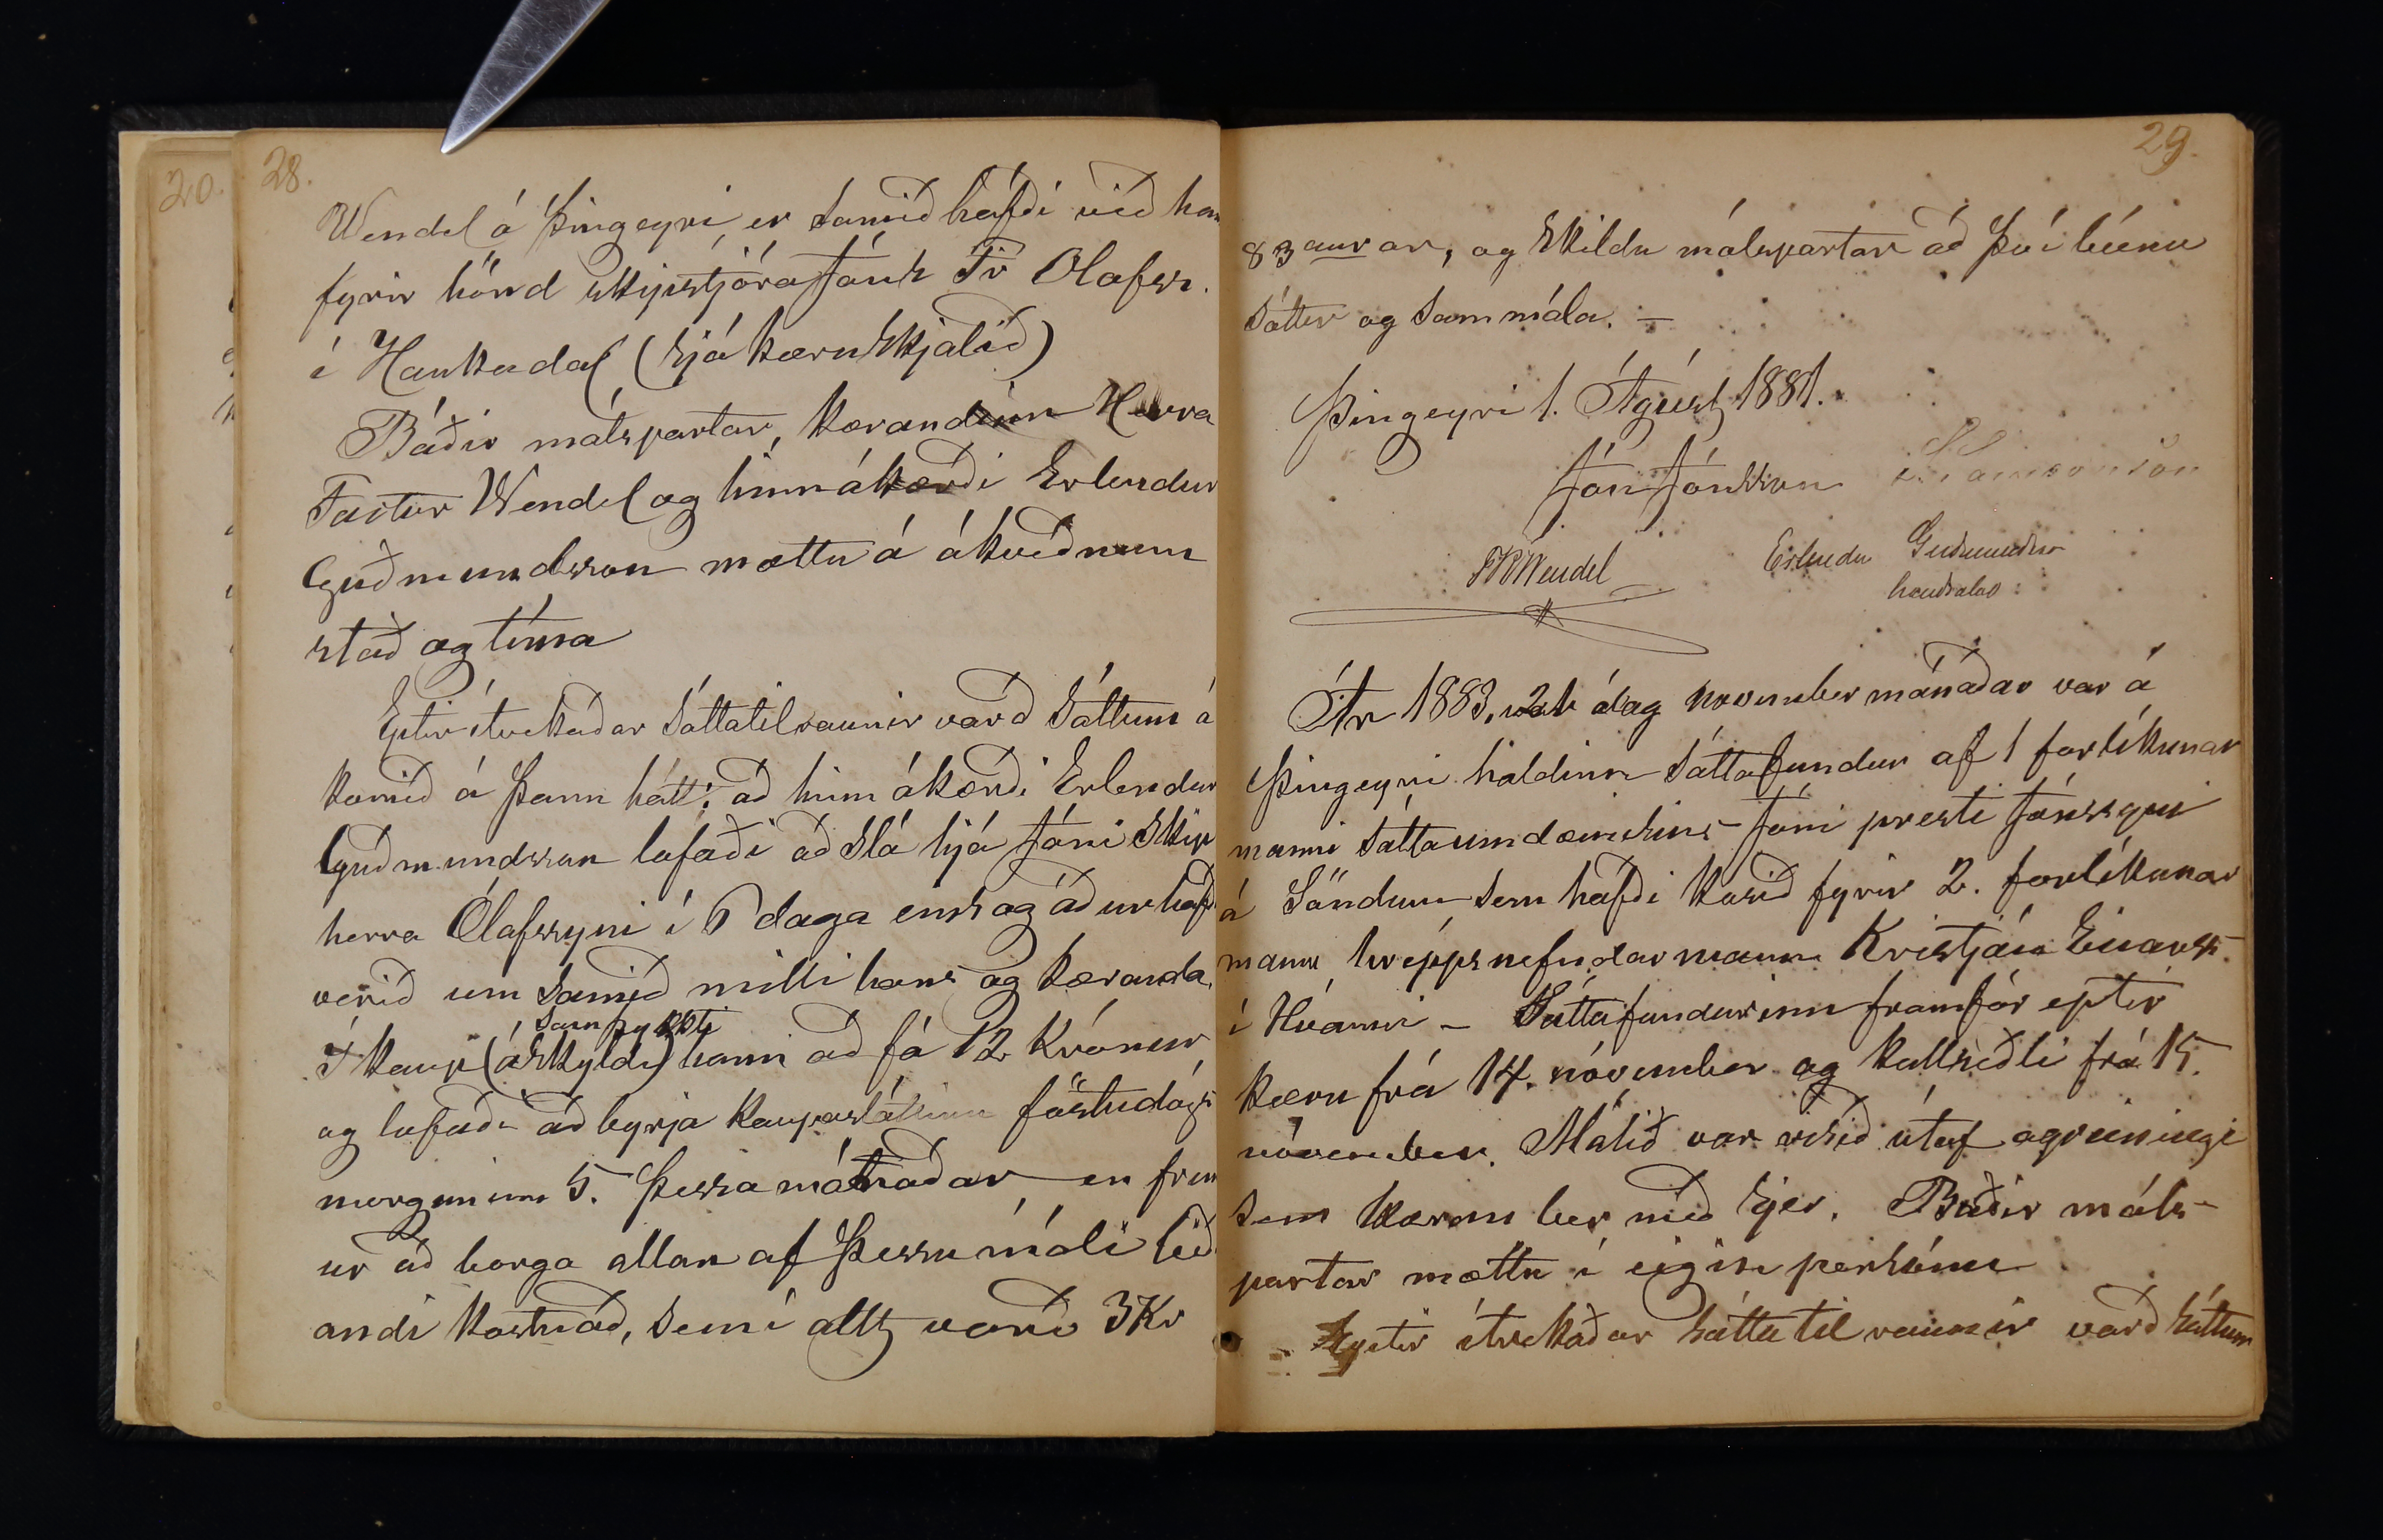 20.
28.
Wendel á Þingeyri er samið hafði við han
fyrir hönd skipstjóra Jóns Fr Olafss.
í Haukadal (sjá kæruskjalið)
Báðir málspartar, kærandinn Herra
Factor Wendel og hinn ákærði Erlendur
Guðmundsson mættu á ákveðnum
stað og tíma
Eptir ítrekaðar sáttatilraunir varð sáttum á
komið á þann hátt: að hinn ákærði Erlendur
Guðmundsson lofaði að slá hjá Jóni skip
herra Ólafssyni í 6 daga eins og áður hafði
verið um samið milli hans og kæranda.
samþykkti
Í kaup (áskyldi) hann að fá 12 Krónur
og lofaði að byrja kaupasláttinn föstudags
morguninn 5. þessa mánaðar en frem
ur að borga allan af þessu máli leið
andi kostnað, sem í allt varð 3 Kr
29.
83 aurar, og skildu málspartar að því búnu
sáttir og sammála. –
Þingeyri 1. Ágúst 1881.
Jón Jónsson
FRWendel
Erlendur Guðmundsson
handsalað
Ár 1883, 21 dag november mánaðar var á
Þingeyri haldinn sáttafundur af 1 forlíkunar
manni sáttaumdæmisins Jóni presti Jónssyni
á Söndum sem hafði kosið fyrir 2. forlíkunar
mann hreppsnefndarmann Kristján Einarss.
í Hvammi – Sáttafundurinn framfór eptir
kæru frá 14. nóvember og kallseðli frá 15.
nóvember. Málið var risið útaf agreiningi
sem kæran ber með sjer. Báðir máls-
partar mættu í eigin persónu
Eptir ítrekaðar sáttatilraunir varð sáttum